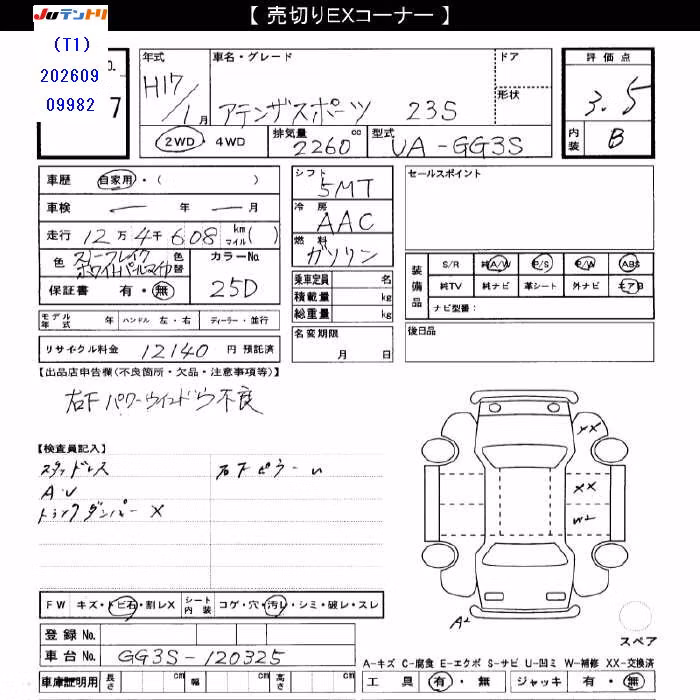 【 売切りEXコーナー 】
JUテントリ
(T1)
202609
09982
7
年式 H17/1月
車名・グレード アテンザスポーツ 23S
ドア
形状
評価点 3.5
内装 B
2WD・4WD
排気量 2260 cc
型式 UA-GG3S
車歴 自家用・( )
車検 年 月
走行 12万4千608 km マイル( )
色 スノーフレイク ホワイトパールマイカ 色替
カラーNo 25D
保証書 有・無
シフト 5MT
冷房 AAC
燃料 ガソリン
乗車定員 名
積載量 kg
総重量 kg
名変期限
月 日
セールスポイント
装備品
S/R 純A/W P/S P/W ABS
純TV 純ナビ 革シート 外ナビ エアB
ナビ型番:
後日品
モデル年式 年 ハンドル 左・右 ディーラー・並行
リサイクル料金 12140 円 預託済
【出品店申告欄(不良箇所・欠品・注意事項等)】
右F パワーウインドウ不良
【検査員記入】
スタッドレス 右Fピラー
A・U
トランクダンパー X
XX
XX
W2
A2
FW キズ・トビ石・割レX シート内装 コゲ・穴・汚レ・シミ・破レ・スレ
登録 No.
車台 No. GG3S-120325
車庫証明用 長さ cm 幅 cm 高さ cm
スペア
A-キズ C-腐食 E-エクボ S-サビ U-凹ミ W-補修 XX-交換済
工具 有・無 ジャッキ 有・無